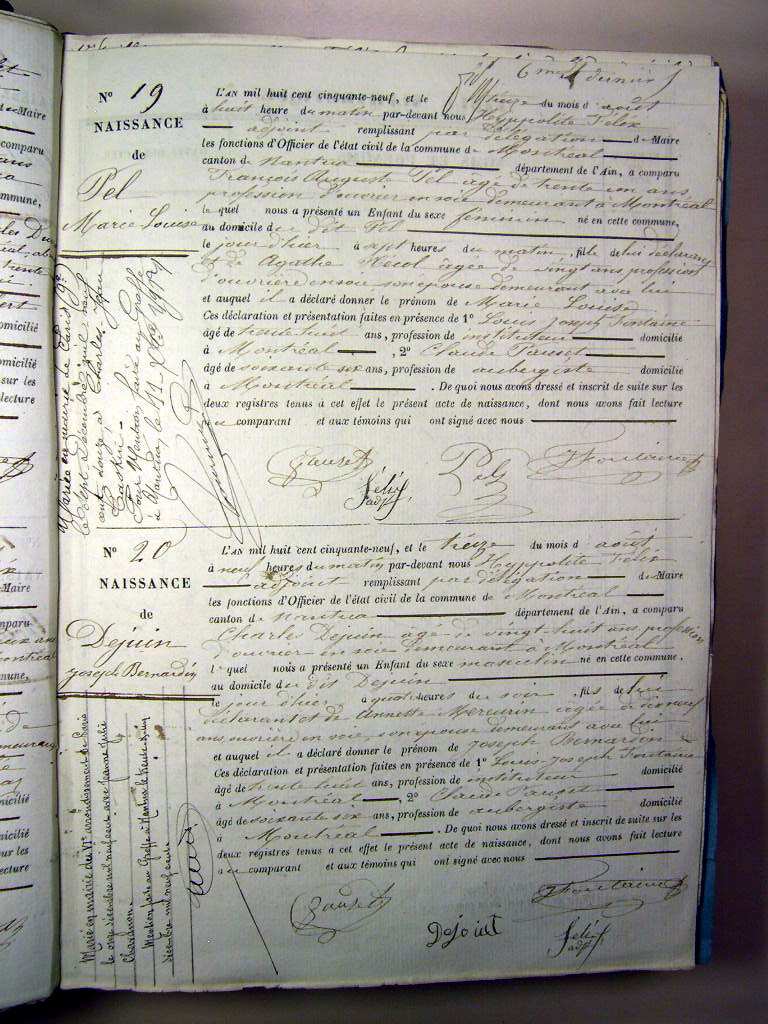 6 mars dernier
N° 19
NAISSANCE
de
Pel
Marie Louise
L'AN mil huit cent cinquante-neuf, et le treize du mois d'août
à huit heure du matin par-devant nous Hyppolite Félix
adjoint remplissant par délégation de Maire
les fonctions d'Officier de l'état civil de la commune de Montréal
canton de Nantua département de l'Ain, a comparu
François Auguste Pel âgé de trente un ans
profession d'ouvrier en soie demeurant à Montréal
lequel nous a présenté un Enfant du sexe féminin né en cette commune,
au domicile du dit Pel
le jour d'hier à sept heures du matin, fille de lui déclarant
et de Agathe âgée de vingt ans profession
d'ouvrière en soie son épouse demeurant avec lui
et auquel il a déclaré donner le prénom de Marie Louise
Ces déclaration et présentation faites en présence de 1° Louis Joseph Fontaine
âgé de trente huit ans, profession de instituteur domicilié
à Montréal, 2° Claude Pauset
âgé de soixante six ans, profession de aubergiste domicilié
à Montréal. De quoi nous avons dressé et inscrit de suite sur les
deux registres tenus à cet effet le présent acte de naissance, dont nous avons fait lecture
au comparant et aux témoins qui ont signé avec nous
Pauset
Félix
adjt
Pel
J Fontaine
Mariée en mairie de Paris
le sept décembre mil neuf
cent onze à Charles Jean
Mention faite au Greffe
à Nantua le
N° 20
NAISSANCE
de
Dejuin
Joseph Bernardin
L'AN mil huit cent cinquante-neuf, et le treize du mois d'août
à neuf heures du matin par-devant nous Hyppolite Félix
adjoint remplissant par délégation de Maire
les fonctions d'Officier de l'état civil de la commune de Montréal
canton de Nantua département de l'Ain, a comparu
Charles Dejuin âgé de vingt huit ans, profession
d'ouvrier en soie demeurant à Montréal
lequel nous a présenté un Enfant du sexe masculin né en cette commune.
au domicile du dit Dejuin
le jour d'hier à quatre heures du soir, fils de lui
déclarant et d'Annette Mercurin âgée de
ans, ouvrière en soie, son épouse demeurant avec lui
et auquel il a déclaré donner le prénom de Joseph Bernardin
Ces déclaration et présentation faites en présence de 1° Louis Joseph Fontaine
âgé de trente huit ans, profession de instituteur domicilié
à Montréal, 2° Claude Pauset
âgé de soixante six ans, profession de aubergiste domicilié
à Montréal. De quoi nous avons dressé et inscrit de suite sur les
deux registres tenus à cet effet le présent acte de naissance, dont nous avons fait lecture
au comparant et aux témoins qui ont signé avec nous
Pauset
J Fontaine
Dejouit
Félix
adjt
Marié en mairie du VIe arrondissement de Paris
le onze décembre mil neuf cent avec Jeanne Julie
Chavignon.
Mention faite au Greffe à Nantua le
décembre mil neuf cent